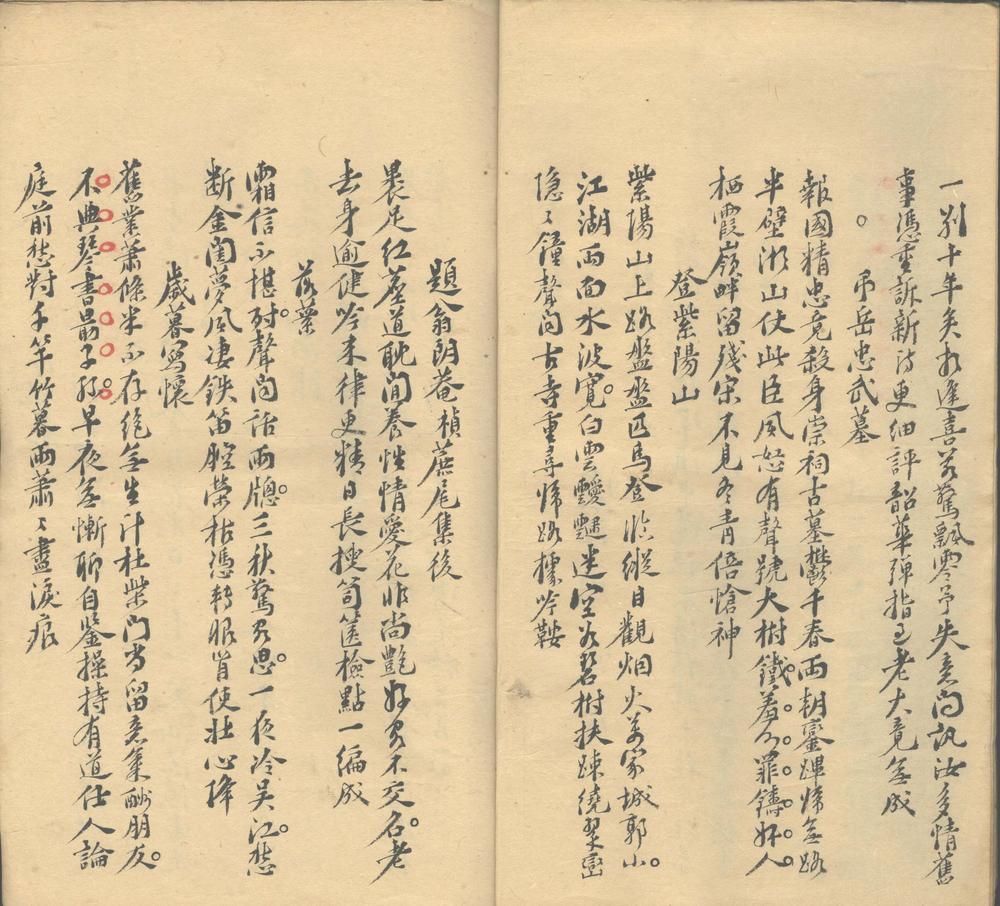 一別十年矣相逢喜若驚飄零予失意问訊汝多情舊
事憑重訴新诗更细評韶華彈指已老大竟無成
弔岳忠武墓
報國精忠竟殺身崇祠古墓鬱千春两朝鑾蹕歸無路
半壁湖山仗此臣风怒有聲號大樹鐵羞分罪鑄奸人
栖霞嶺畔留殘宋不見冬青倍愴神
登紫陽山
紫陽山上路盤盤匹馬登临縱目觀烟火萬家城郭小
江湖两面水波寬白雲靉靆迷空谷碧樹扶疎繞翠巒
隐〻鐘聲问古寺重尋歸路據吟鞍
題翁朗菴楨蔗尾集後
畏足红塵道耽闲養性情愛花非尚艷好客不交名老
去身逾健吟来律更精日長搜笥箧檢點一編成
落葉
霜信不堪聽聲闻话雨牕三秋驚客思一夜冷吴江愁
断金闺夢风凄鉄笛腔榮枯憑转眼肯使壯心降
歲暮寫懷
舊業蕭條半不存绝無生计杜柴门尚留意氣酬朋友
不典琴書最子孙早夜無慚聊自鑒操持有道任人論
庭前愁對千竿竹暮雨蕭〻盡淚痕